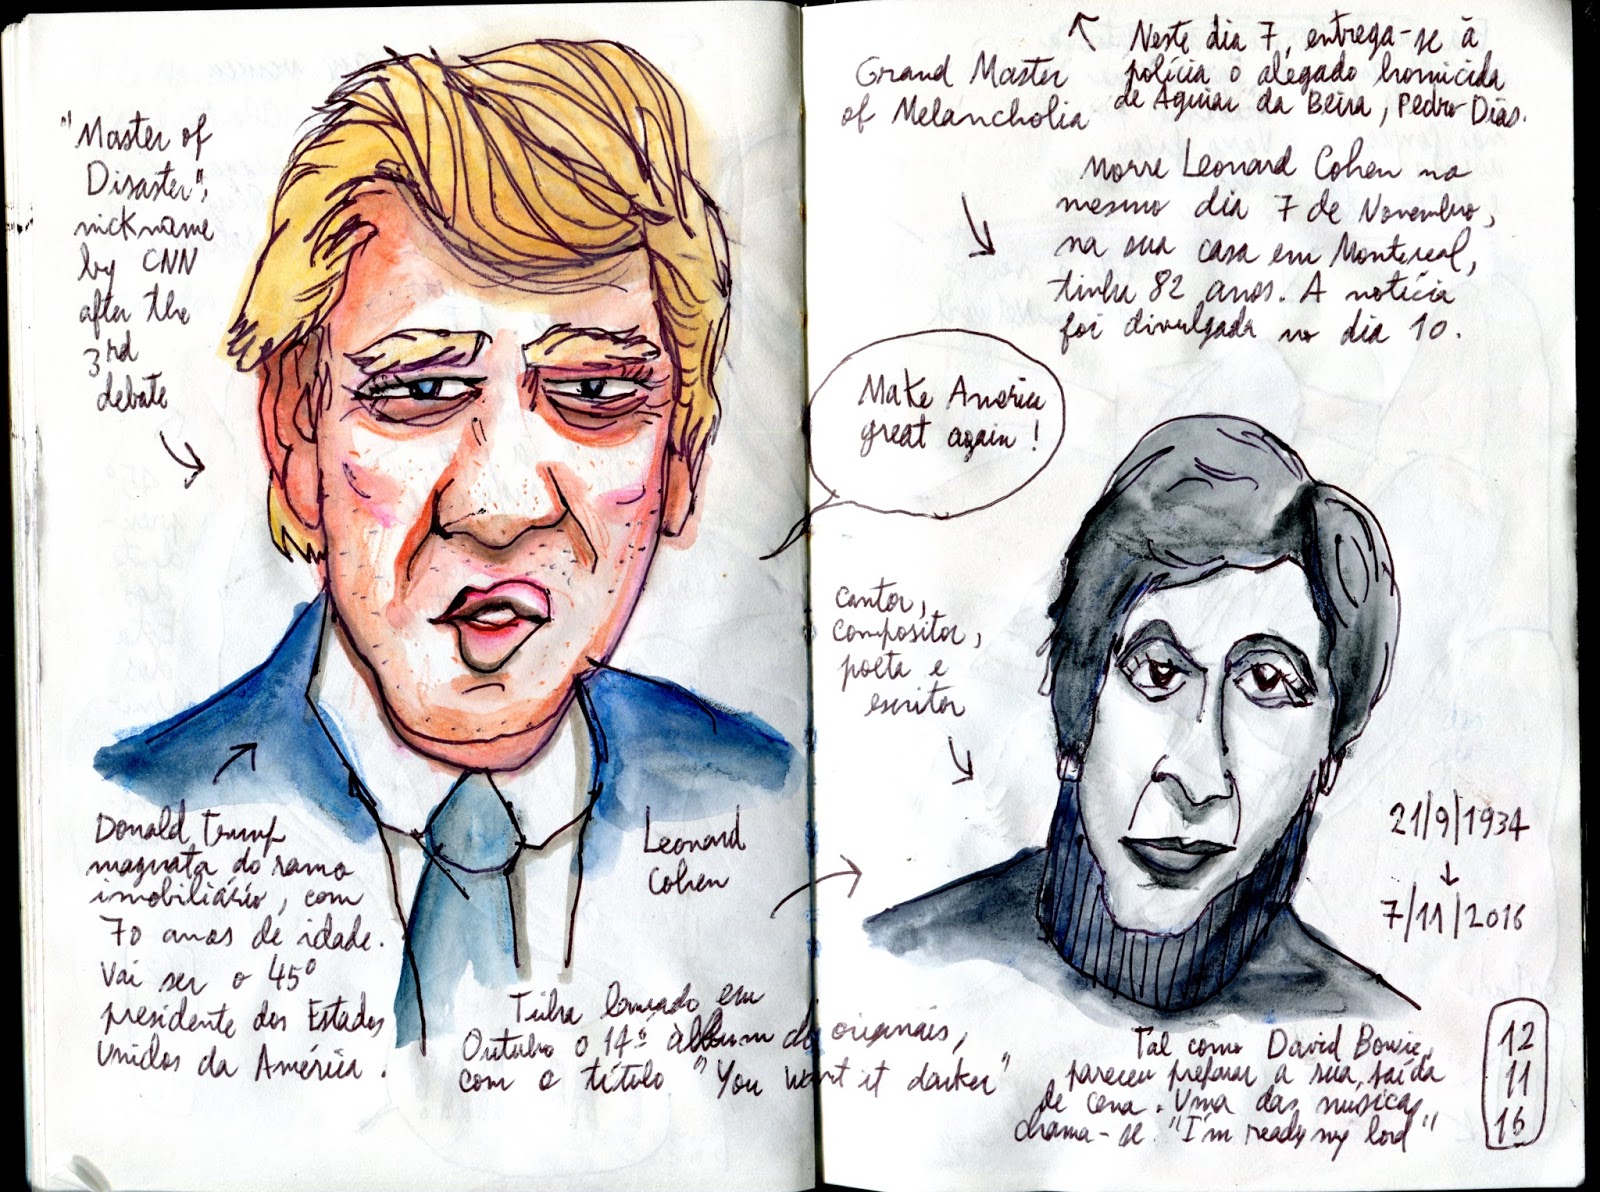 "Master of
Disaster",
nickname
by CNN
after the
3rd
debate
Donald Trump
magnata do ramo
imobiliário, com
70 anos de idade.
Vai ser o 45º
presidente dos Estados
Unidos da América.
Make America
great again!
Grand Master
of Melancholia
Neste dia 7, entrega-se à
polícia o alegado homicida
de Aguiar da Beira, Pedro Dias.
Morre Leonard Cohen no
mesmo dia 7 de Novembro,
na sua casa em Montereal,
tinha 82 anos. A notícia
foi divulgada no dia 10.
cantor,
compositor,
poeta e
escritor
Leonard
Cohen
21/9/1934
7/11/2016
Tinha lançado em
Outubro o 14º álbum de originais,
com o título "You want it darker"
Tal como David Bowie,
pareceu preparar a sua saída
de cena. Uma das músicas
chama-se "I'm ready my lord"
12
11
16